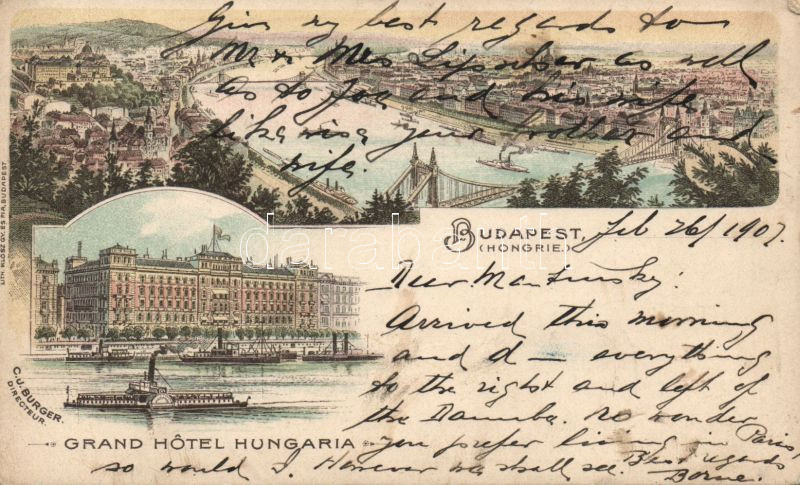 Give my best regards to
Mr & Mrs as well
as to Joy and his wife
likewise your brother and
wife.
BUDAPEST, Feb 26/1907.
(HONGRIE.)
Dear
Arrived this morning
and d— everything
to the right and left of
the Danube. No wonder
you prefer living in Paris,
so would I. However we shall see. Best regards
LITH. KLÖSZ GY. ÉS FIA, BUDAPEST
C.J. BURGER
DIRECTEUR.
GRAND HÔTEL HUNGARIA
darabanth